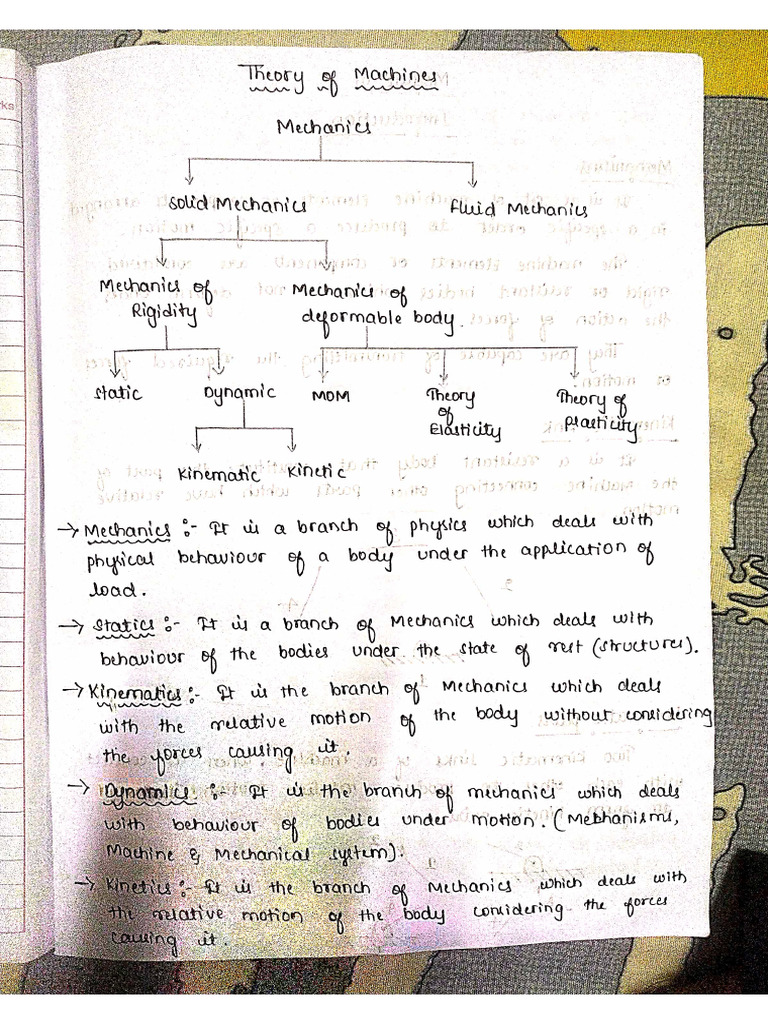 Theory of Machines
Mechanics
Solid Mechanics
fluid Mechanics
Mechanics of
Rigidity
Mechanics of
deformable body.
Static
Dynamic
MOM
Theory
of
Elasticity
Theory of
Plasticity
Kinematic
Kinetic
→ Mechanics :- It is a branch of physics which deals with
physical behaviour of a body under the application of
load.
→ Statics :- It is a branch of Mechanics which deals with
behaviour of the bodies under the state of rest (structures).
→ Kinematics :- It is the branch of Mechanics which deals
with the relative motion of the body without considering
the forces causing it.
→ Dynamics :- It is the branch of mechanics which deals
with behaviour of bodies under motion. (Mechanisms,
Machine & Mechanical system).
→ Kinetics :- It is the branch of Mechanics which deals with
the relative motion of the body considering the forces
causing it.